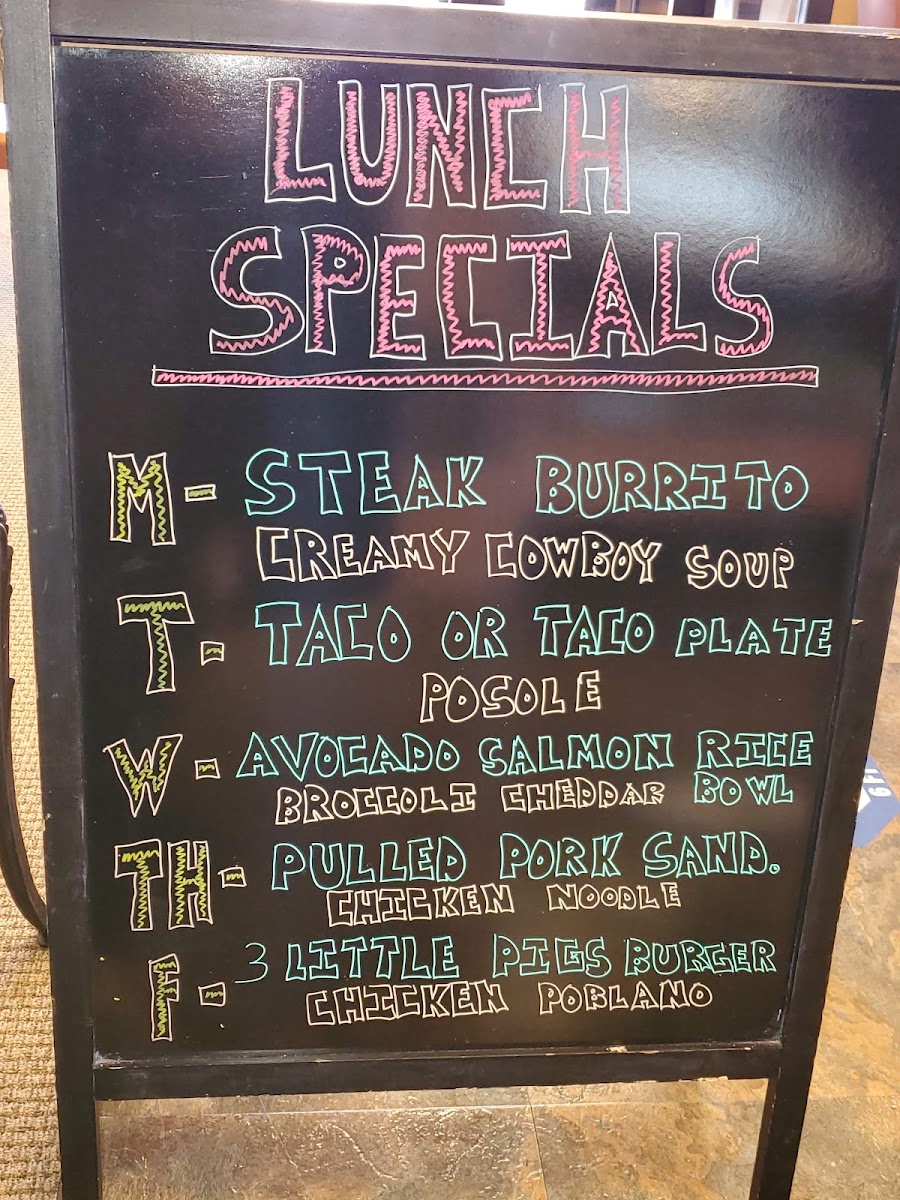 LUNCH
SPECIALS
M- STEAK BURRITO
CREAMY COWBOY SOUP
T- TACO OR TACO PLATE
POSOLE
W- AVOCADO SALMON RICE
BROCCOLI CHEDDAR BOWL
TH- PULLED PORK SAND.
CHICKEN NOODLE
F- 3 LITTLE PIGS BURGER
CHICKEN POBLANO